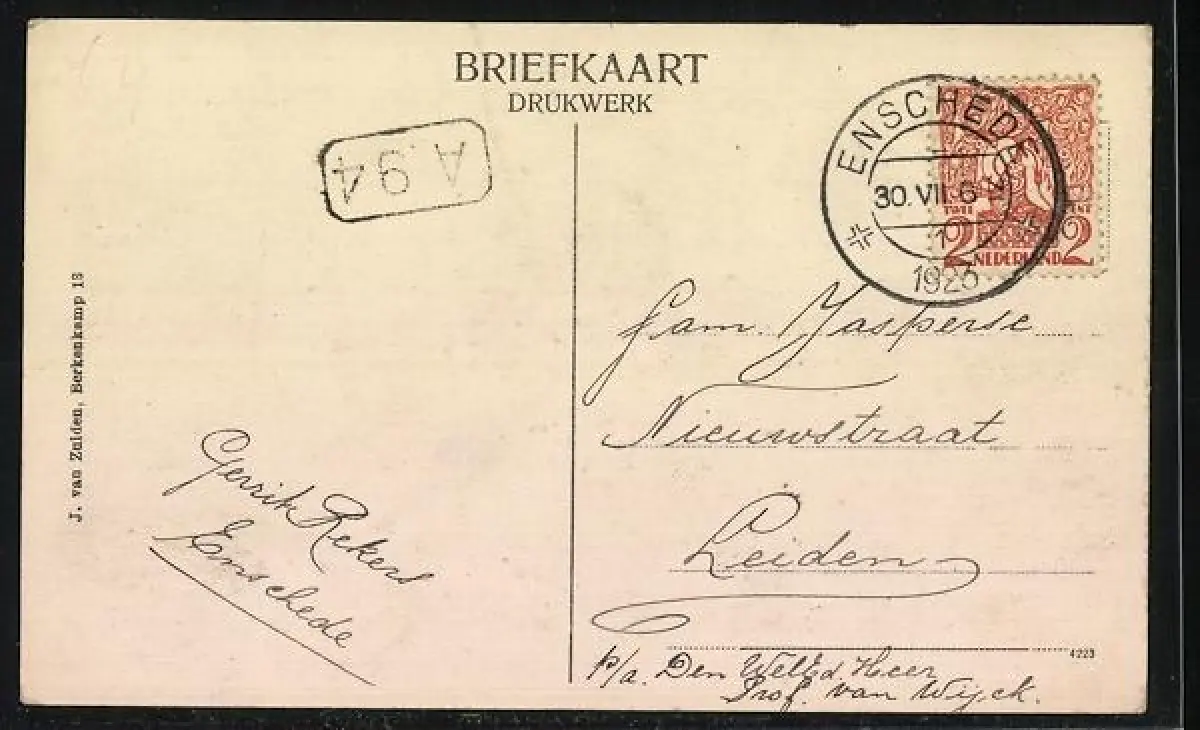 BRIEFKAART
DRUKWERK
A.94
ENSCHEDE
30.VII.6
1923
2 NEDERLAND 2
Fam. Jasperse
Nieuwstraat
Leiden
p/a. Den WelEd. Heer
Prof. van Wijck.
4223
Gerrit Rekers
Enschede
J. van Zulden, Berkenkamp 18